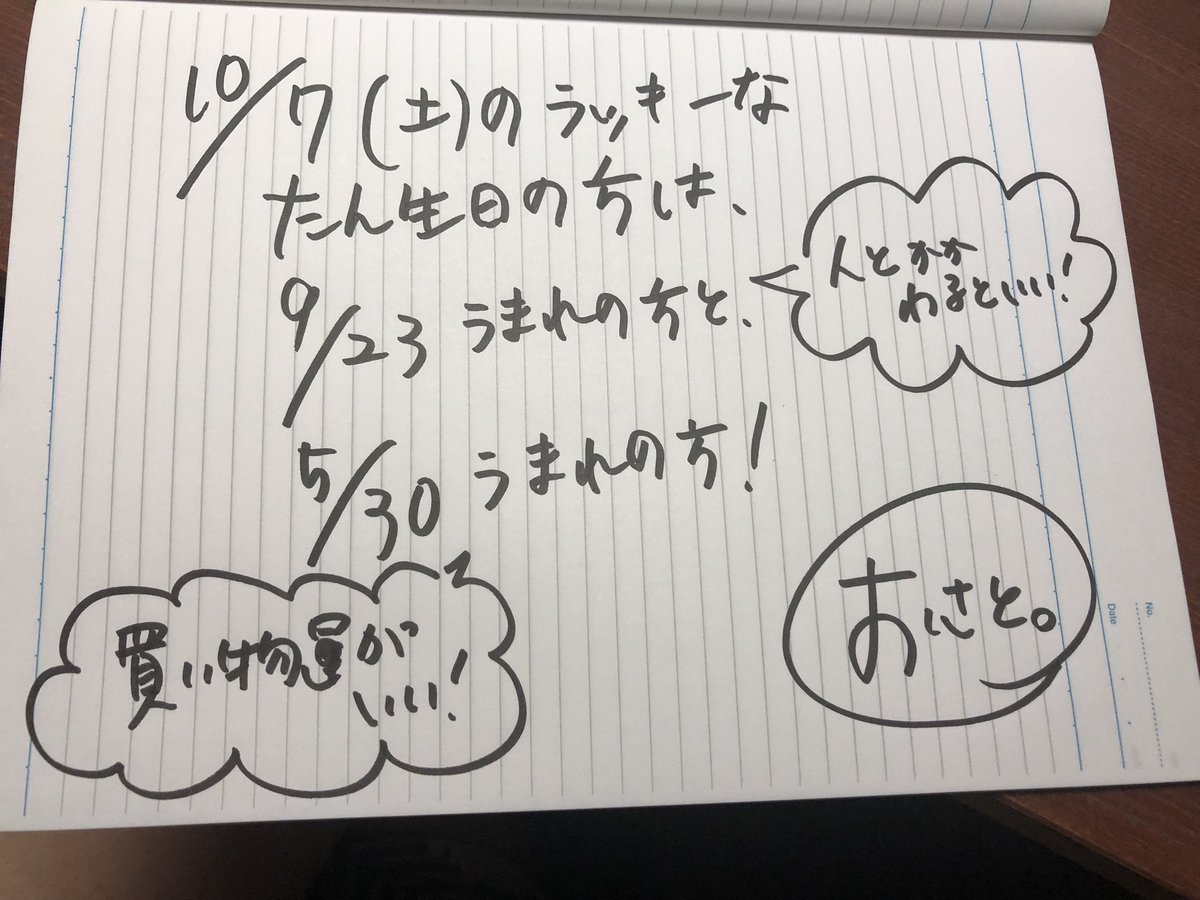 10/7(土)のラッキーな
たん生日の方は、
9/23 うまれの方と、
人とかか
わるといい!
5/30 うまれの方!
買い物運が
いい!
おにさと。
No.
Date